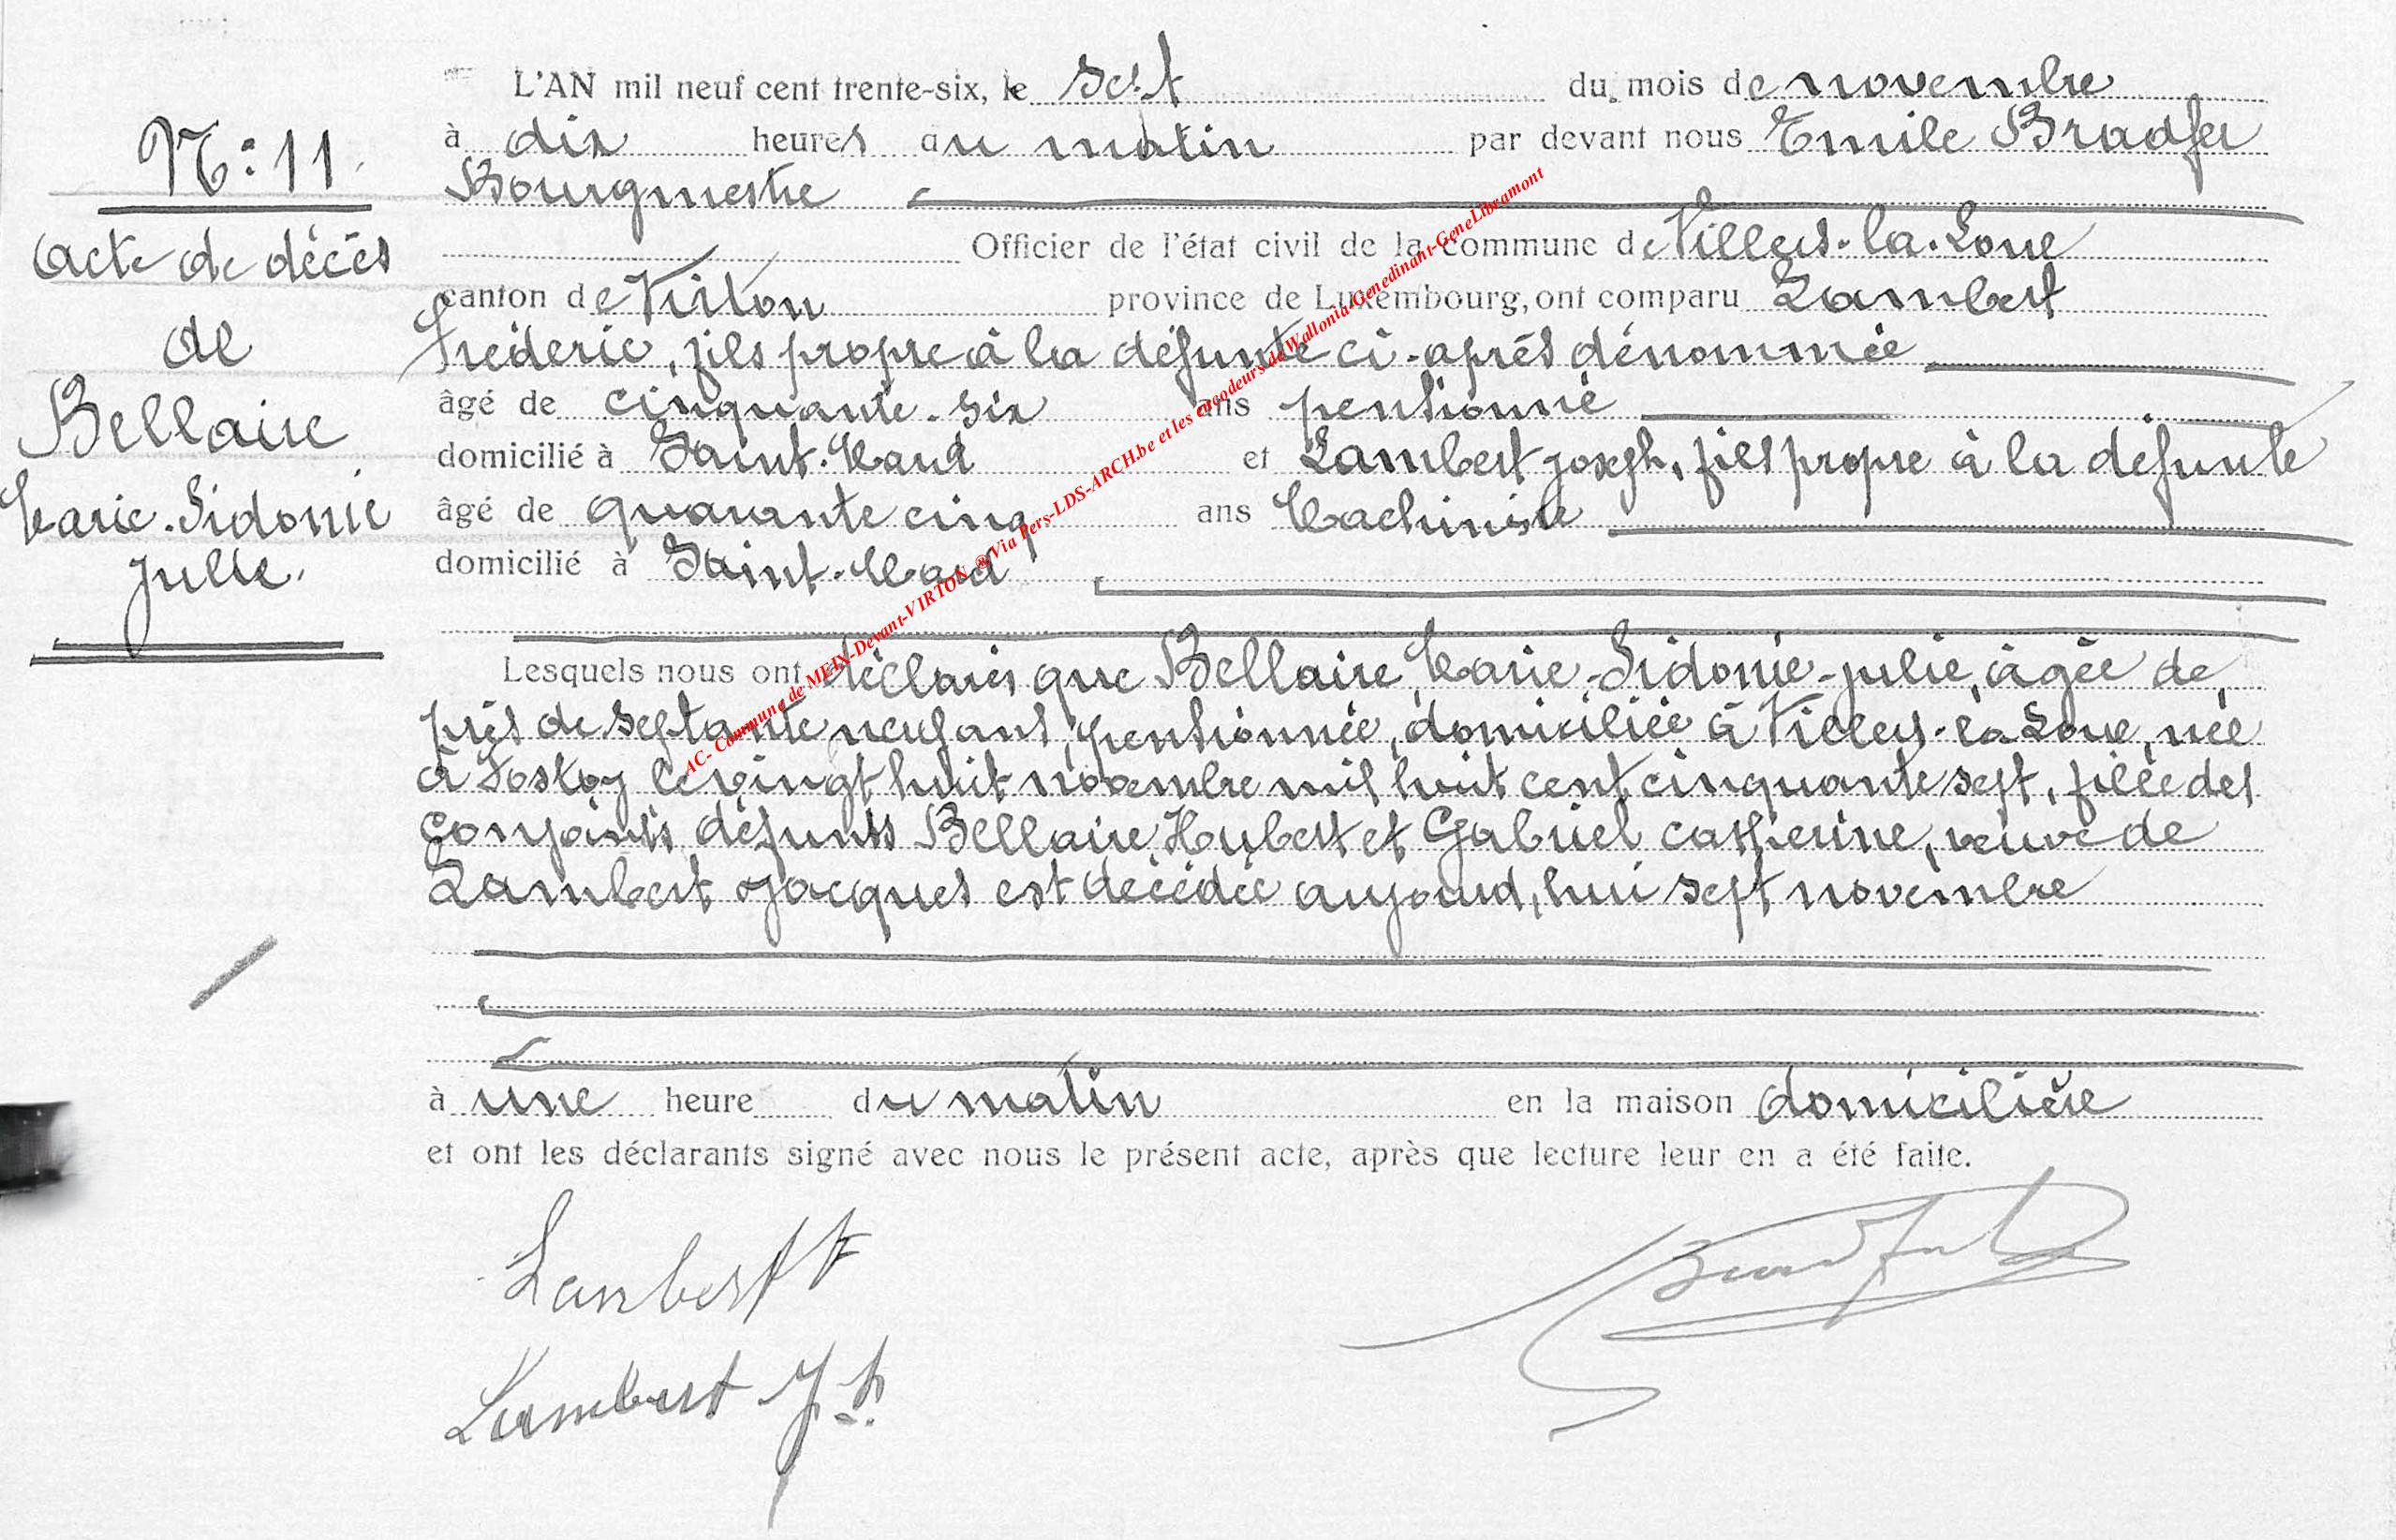 N°: 11
Acte de décès
de
Bellaire
Marie-Sidonie
Julie.
L'AN mil neuf cent trente-six, le sept du mois de novembre
à dix heures du matin par devant nous Emile Bradfer
Bourgmestre
Officier de l'état civil de la commune de Villers-la-Loue
canton de Virton province de Luxembourg, ont comparu Lambert
Frédéric, fils propre à la défunte ci-après dénommée
âgé de cinquante-six ans pensionné
domicilié à Saint-Mard et Lambert Joseph, fils propre à la défunte
âgé de quarante cinq ans Machiniste
domicilié à Saint-Mard
Lesquels nous ont déclarés que Bellaire, Marie-Sidonie-Julie, âgée de
près de septante neuf ans, pensionnée, domiciliée à Villers-la-Loue, née
à le vingt huit novembre mil huit cent cinquante sept, fille des
conjoints défunts Bellaire, Hubert et Gabriel Catherine, veuve de
Lambert Jacques est décédée aujourd'hui sept novembre
à une heure du matin en la maison domicilière
et ont les déclarants signé avec nous le présent acte, après que lecture leur en a été faite.
Lambert F
Lambert Jh.
Bradfer
AC- Commune de MEIX-Devant-VIRTON ® Via Pers-LDS-ARCH.be et les encodeurs de Wallonia-Genedinant-GeneLibramont